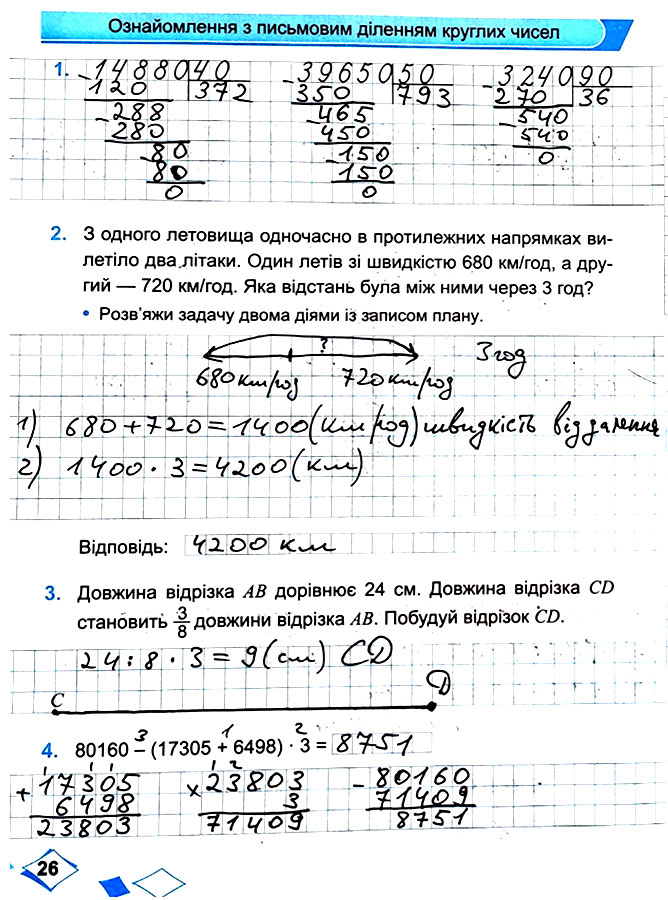 Ознайомлення з письмовим діленням круглих чисел
1. -14880 40 -39650 50 -3240 90
120 372 350 793 270 36
-288 -465 -540
280 450 540
-80 -150 0
80 150
0 0
2. З одного летовища одночасно в протилежних напрямках ви-
летіло два літаки. Один летів зі швидкістю 680 км/год, а дру-
гий — 720 км/год. Яка відстань була між ними через 3 год?
• Розв'яжи задачу двома діями із записом плану.
? 3 год
680 км/год 720 км/год
1) 680 + 720 = 1400 (км/год) швидкість віддалення
2) 1400 · 3 = 4200 (км)
Відповідь: 4200 км
3. Довжина відрізка AB дорівнює 24 см. Довжина відрізка CD
становить 3/8 довжини відрізка AB. Побудуй відрізок CD.
24 : 8 · 3 = 9 (см) CD
C D
3 1 2
4. 80160 – (17305 + 6498) · 3 = 8751
1 1 1 1 2
+ 17305 × 23803 - 80160
6498 3 71409
23803 71409 8751
26